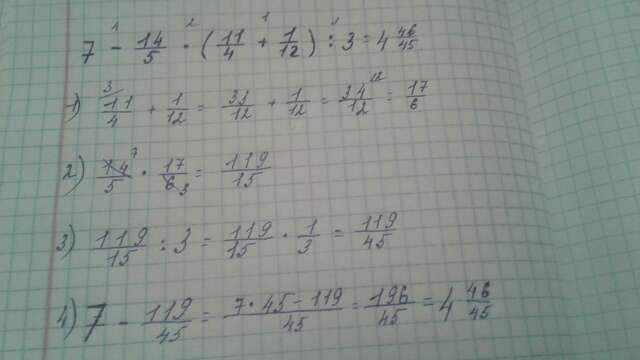 7 - 14/5 · (11/4 + 1/12) : 3 = 4 46/45
1) 11/4 + 1/12 = 33/12 + 1/12 = 34/12 = 17/6
2) 14/5 · 17/6 = 119/15
3) 119/15 : 3 = 119/15 · 1/3 = 119/45
4) 7 - 119/45 = 7·45-119/45 = 196/45 = 4 46/45